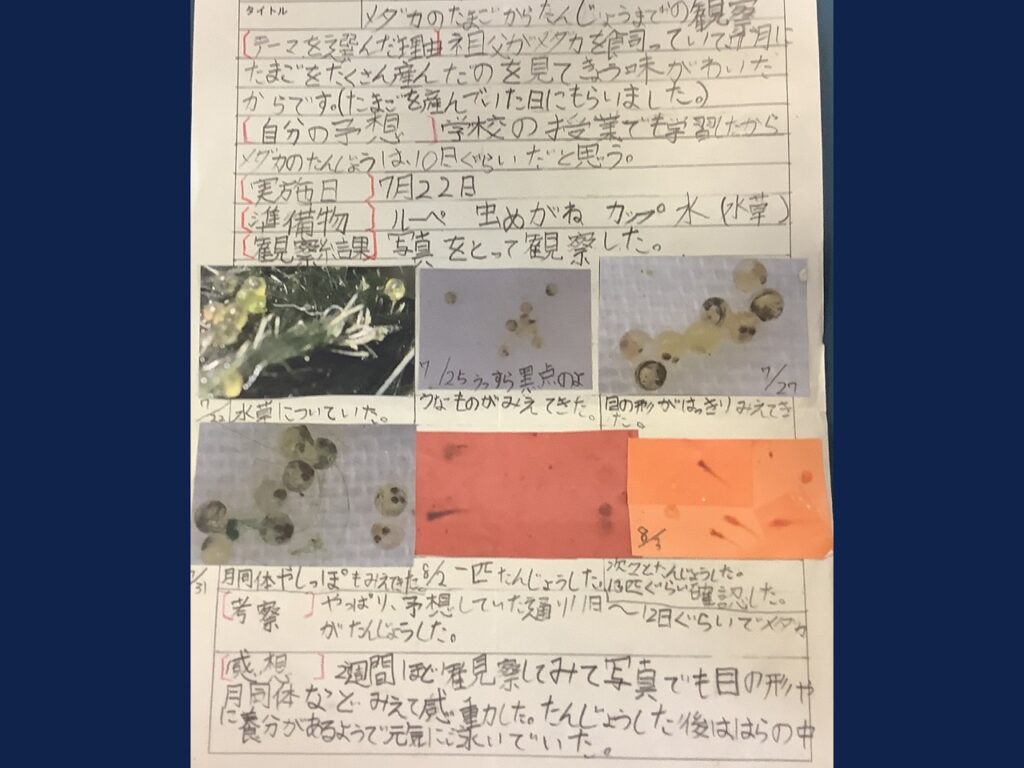 タイトル メダカのたまごからたんじょうまでの観察
[テーマを選んだ理由]祖父がメダカを飼っていて7月に
たまごをたくさん産んだのを見てきょう味がわいた
からです。(たまごを産んでいた日にもらいました。)
[自分の予想]学校の授業でも学習したから
メダカのたんじょうは、10日ぐらいだと思う。
[実施日]7月22日
[準備物]ルーペ 虫めがね カップ 水(水草)
[観察結課]写真をとって観察した。
7/22 水草についていた。
7/25うっすら黒点のよ
うなものがみえてきた。
7/27
目の形がはっきりみえてき
た。
7/31 胴体やしっぽもみえてきた。
8/2 一匹たんじょうした。
8/3
次々とたんじょうした。
13匹ぐらい確認した。
[考察]やっぱり、予想していた通り11日〜12日ぐらいでメダカ
がたんじょうした。
[感想]2週間ほど観察してみて写真でも目の形や
胴体などみえて感動した。たんじょうした後ははらの中
に養分があるようで元気に泳いでいた。